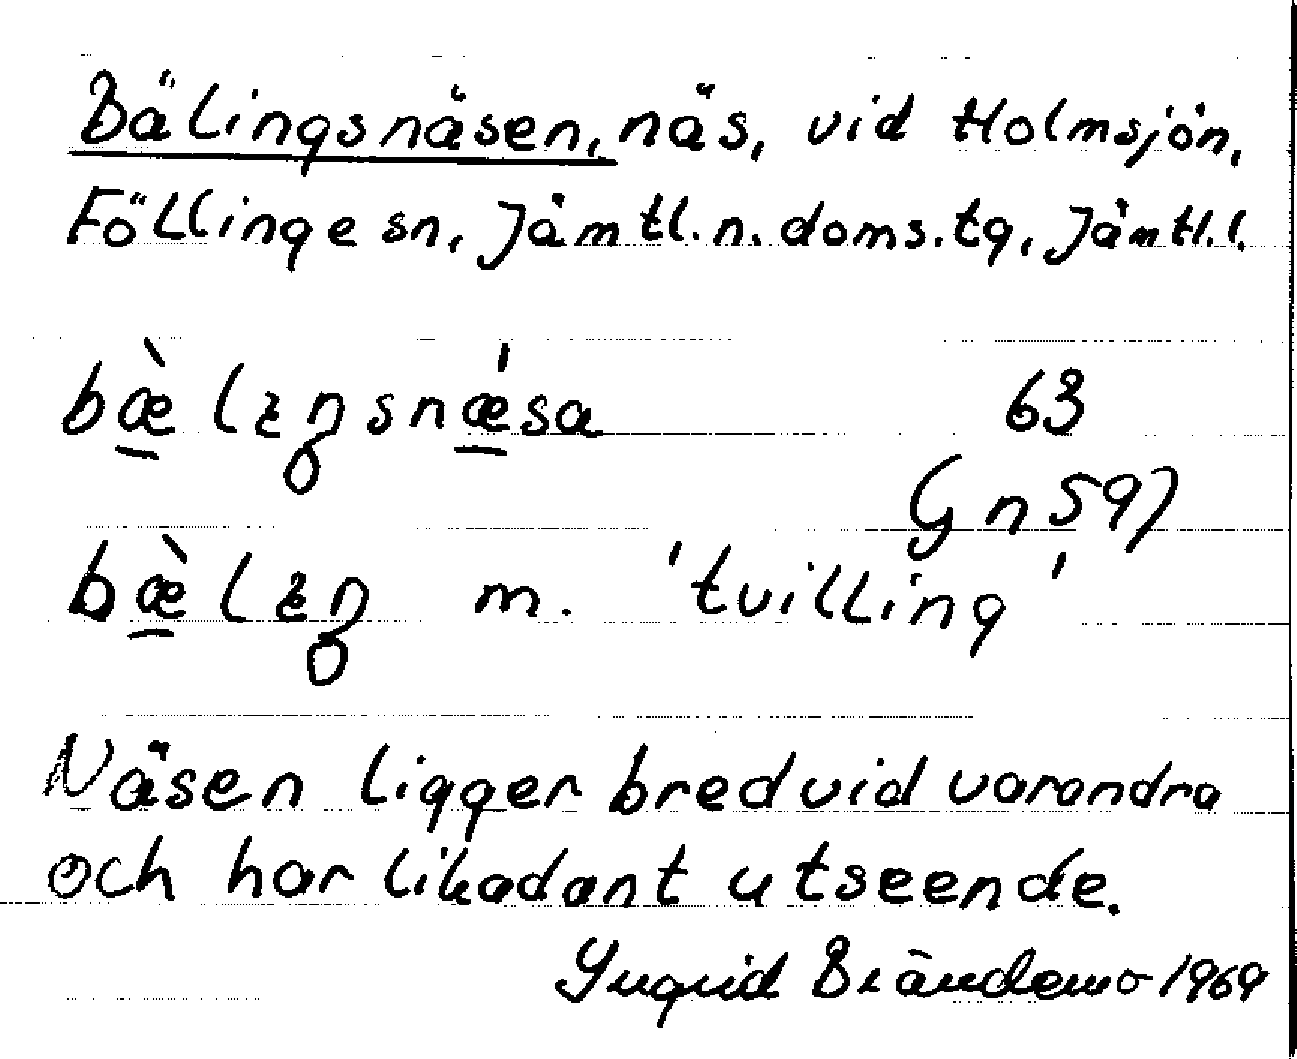 Bälingsnäsen, näs, vid Holmsjön,
Föllinge sn, Jämtl. n. doms. tg, Jämtl. l.
bæ̀lıŋsnǽsa 63
Gn 597
bæ̀lıŋ m. 'tvilling'
Näsen ligger bredvid varandra
och har likadant utseende.
Ingrid Brändemo 1969